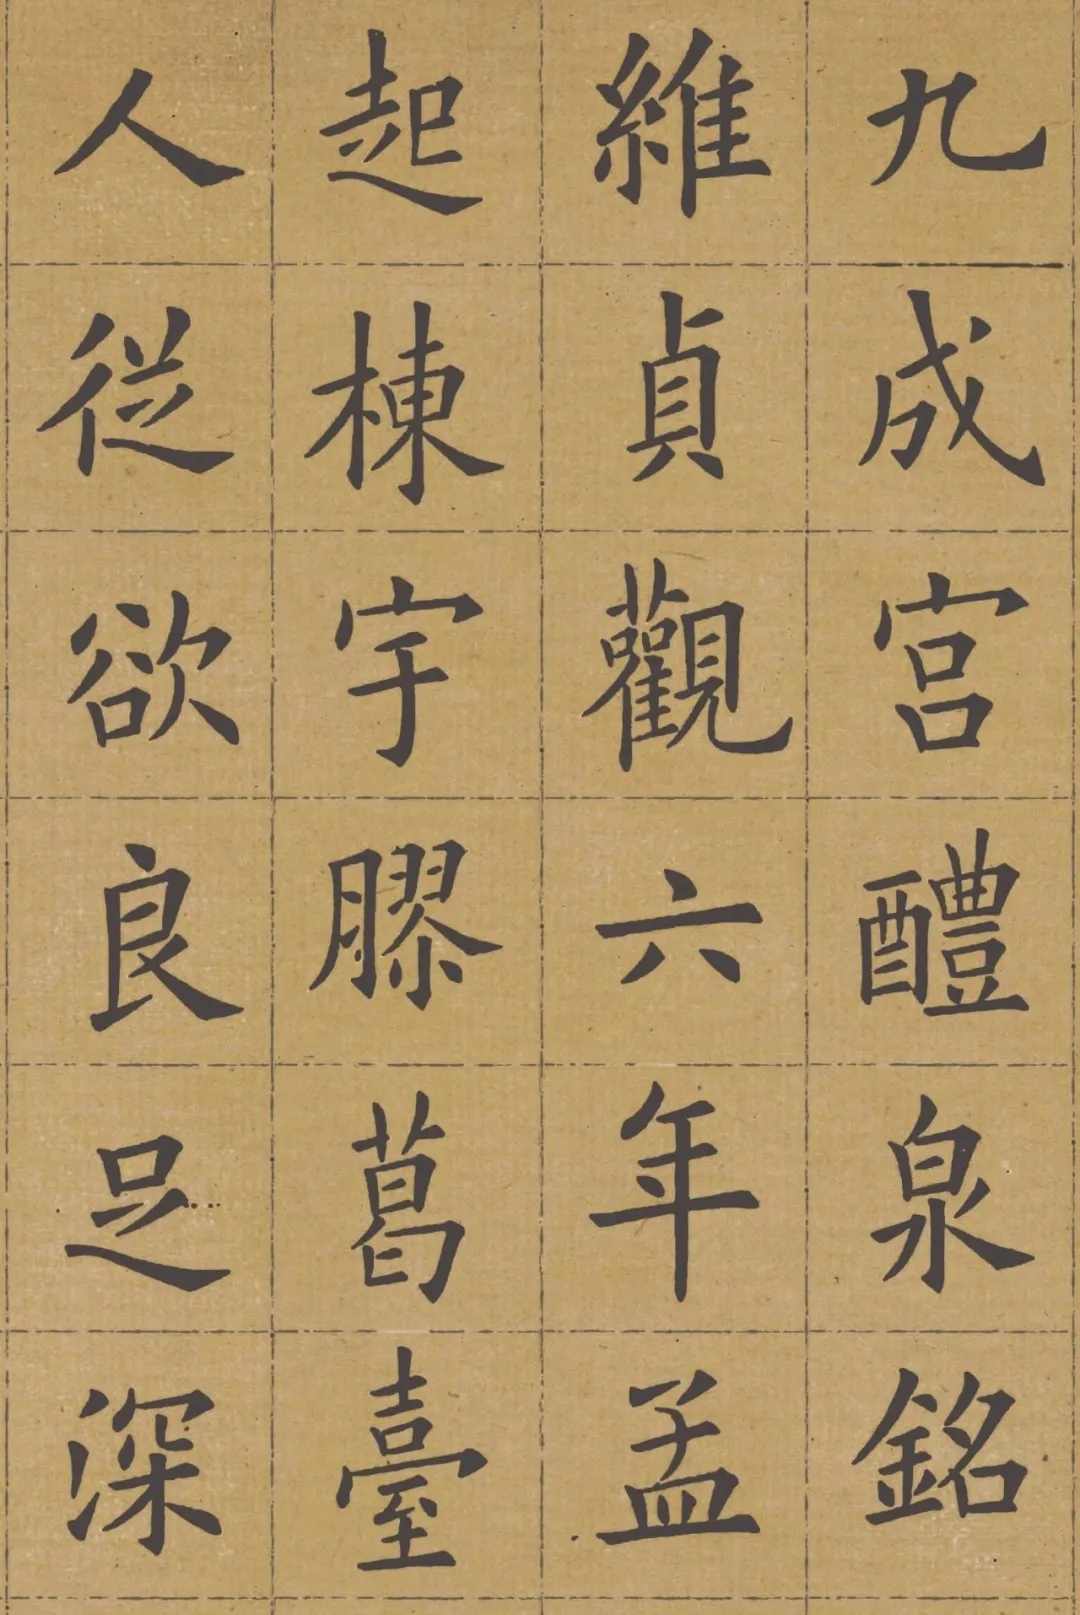 九成宫醴泉銘
維貞觀六年孟
起棟宇膠葛臺
人從欲良足深